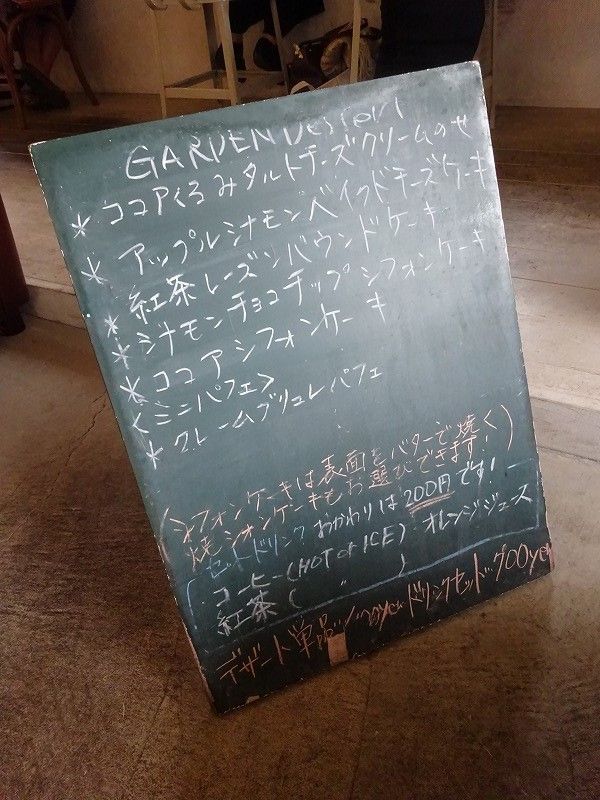 GARDEN Dessert
* ココアくるみタルトチーズクリームのせ
* アップルシナモンベイクドチーズケーキ
* 紅茶レーズンパウンドケーキ
* シナモンチョコチップシフォンケーキ
* ココアシフォンケーキ
<ミニパフェ>
* クレームブリュレパフェ
(シフォンケーキは表面をバターで焼く)
焼シフォンケーキもお選びできます!
セットドリンクおかわりは200円です!
コーヒー(HOT or ICE) オレンジジュース
紅茶( 〃 )
デザート単品 yen ドリンクセット 700yen